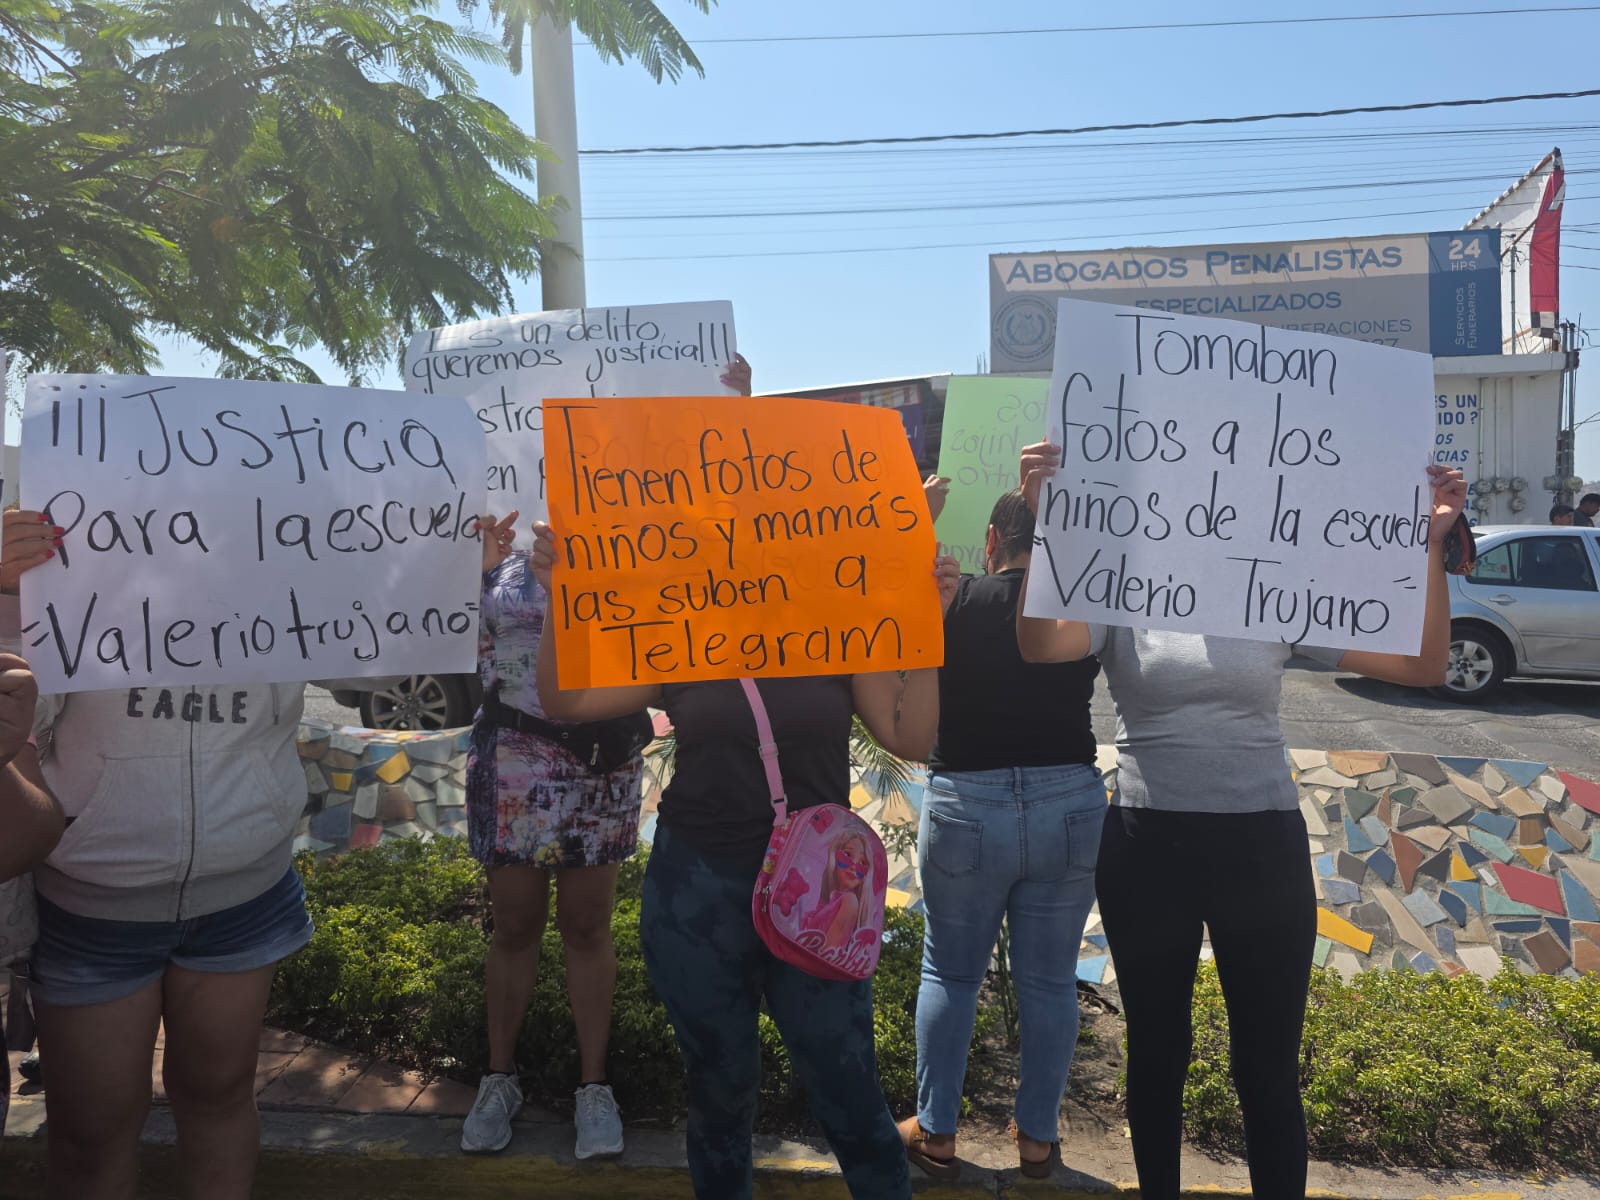 ¡¡¡Justicia
Para la escuela
"Valerio trujano"
Es un delito,
queremos justicia!!!
en
Tienen fotos de
niños y mamás
las suben a
Telegram.
Tomaban
fotos a los
niños de la escuela
"Valerio Trujano"
los
hijos
ABOGADOS PENALISTAS
ESPECIALIZADOS
24
HRS
SERVICIOS
FUNERARIOS
ES UN
EAGLE
Barbie